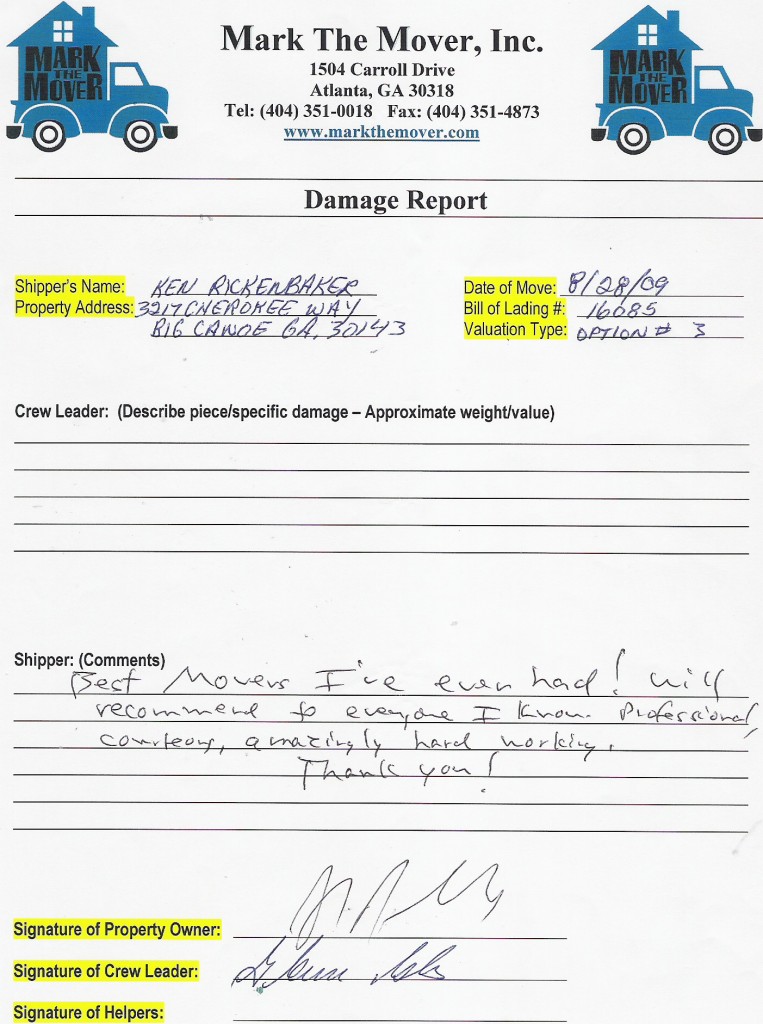 MARK THE MOVER
Mark The Mover, Inc.
MARK THE MOVER
1504 Carroll Drive
Atlanta, GA 30318
Tel: (404) 351-0018 Fax: (404) 351-4873
www.markthemover.com
Damage Report
Shipper's Name: KEN RICKENBAKER
Date of Move: 8/28/09
Property Address: 3217 CHEROKEE WAY
Bill of Lading #: 16085
BIG CANOE GA, 30143
Valuation Type: OPTION # 3
Crew Leader: (Describe piece/specific damage – Approximate weight/value)
Shipper: (Comments)
Best Movers I've ever had! will
recommend to everyone I know. Professional,
courteous, amazingly hard working.
Thank you!
Signature of Property Owner:
Signature of Crew Leader:
Signature of Helpers: